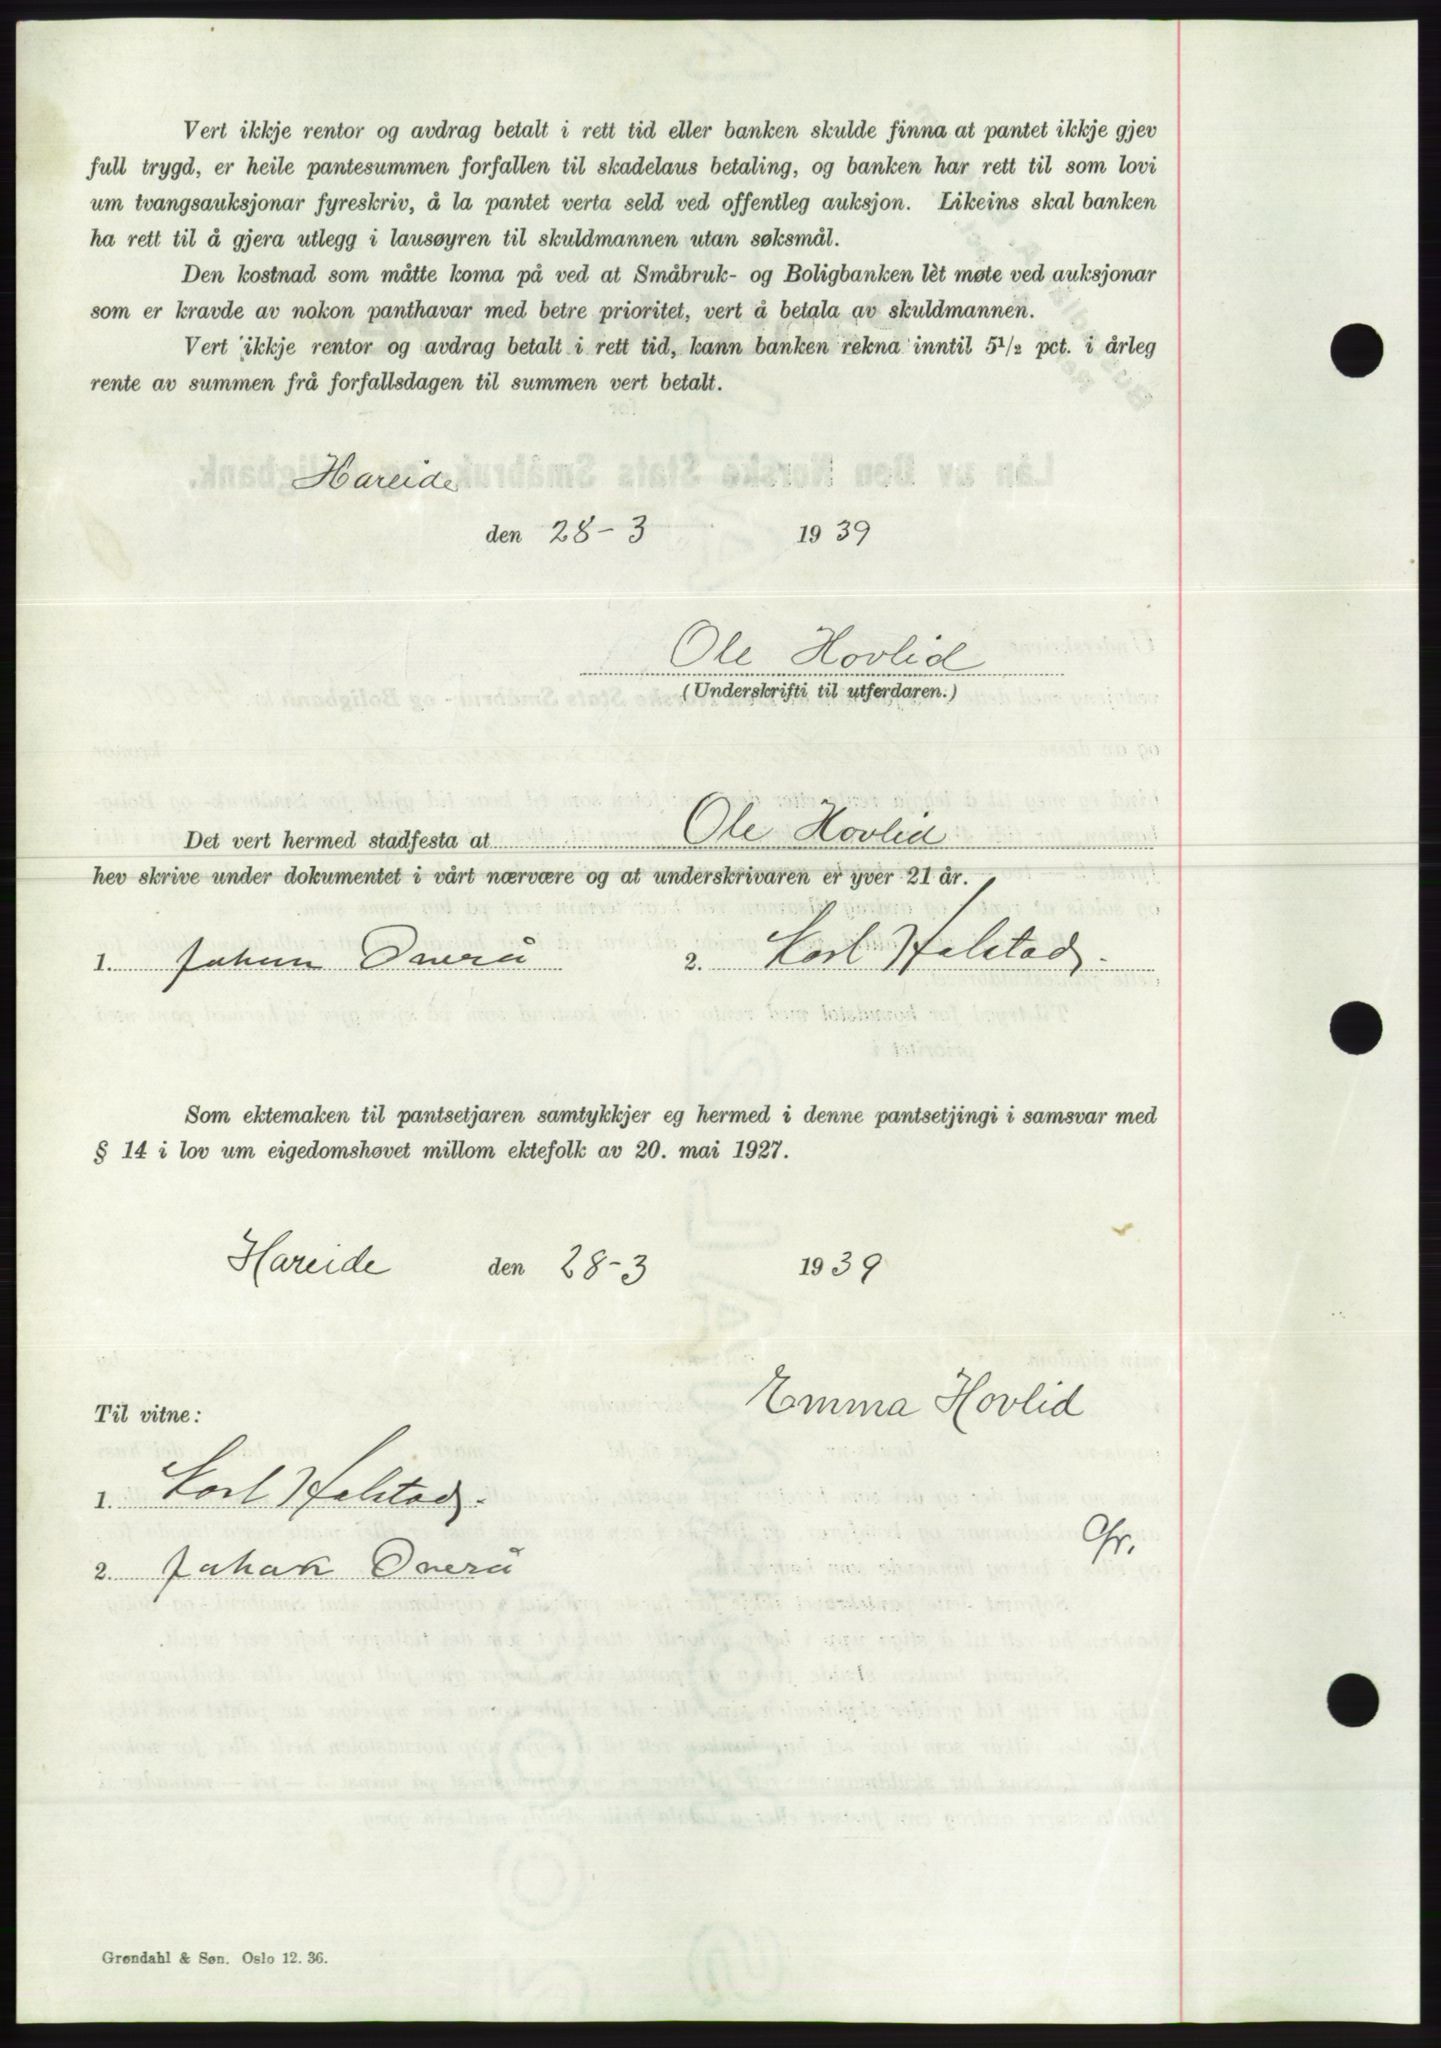 Vert ikkje rentor og avdrag betalt i rett tid eller banken skulde finna at pantet ikkje gjev
full trygd, er heile pantesummen forfallen til skadelaus betaling, og banken har rett til som lovi
um tvangsauksjonar fyreskriv, å la pantet verta seld ved offentleg auksjon. Likeins skal banken
ha rett til å gjera utlegg i lausøyren til skuldmannen utan søksmål.
Den kostnad som måtte koma på ved at Småbruk- og Boligbanken lèt møte ved auksjonar
som er kravde av nokon panthavar med betre prioritet, vert å betala av skuldmannen.
Vert ikkje rentor og avdrag betalt i rett tid, kann banken rekna inntil 5½ pct. i årleg
rente av summen frå forfallsdagen til summen vert betalt.
Hareide
den 28-3 1939
Ole Hovlid
(Underskrifti til utferdaren.)
Det vert hermed stadfesta at Ole Hovlid
hev skrive under dokumentet i vårt nærvære og at underskrivaren er yver 21 år.
1. Johan Overå 2. Karl Halstad.
Som ektemaken til pantsetjaren samtykkjer eg hermed i denne pantsetjingi i samsvar med
§ 14 i lov um eigedomshøvet millom ektefolk av 20. mai 1927.
Hareide den 28-3 1939
Emma Hovlid
Til vitne:
1. Karl Halstad.
2. Johan Overå
Grøndahl & Søn. Oslo 12. 36.